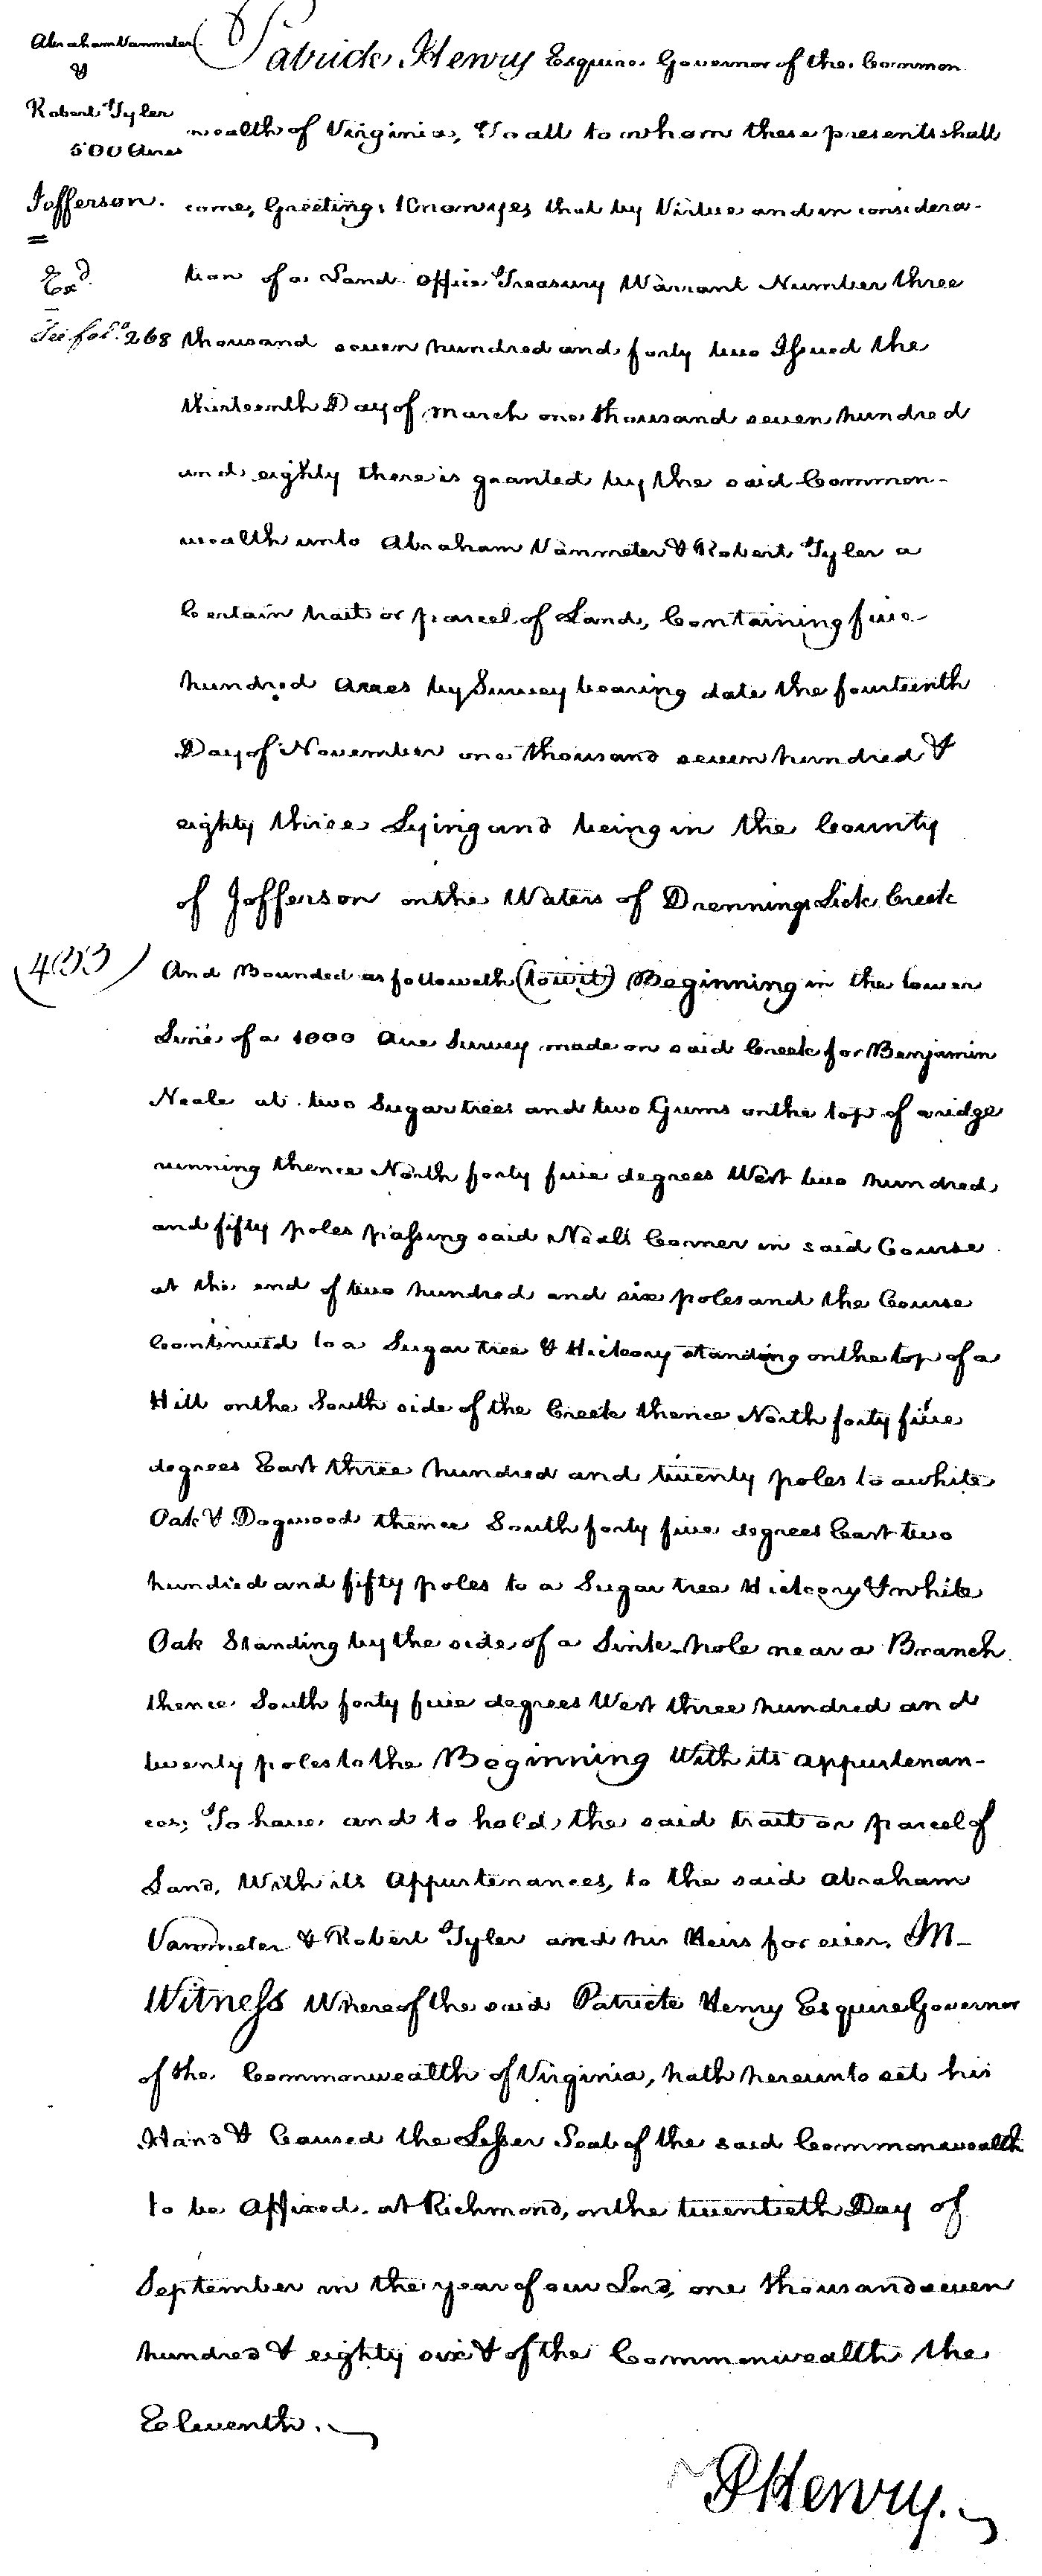 Abraham Vanmeter
&
Robert Tyler
500 Acres
Jefferson.
Exd.
See fol.o 268
Patrick Henry Esquire Governor of the Common
wealth of Virginia, To all to whom these presents shall
come, Greeting, Know yes that by Virtue and in considera-
tion of a Land Office Treasury Warrant Number three
thousand seven hundred and forty two Issued the
thirteenth Day of March one thousand seven hundred
and eighty there is granted by the said Common-
wealth unto Abraham Vanmeter & Robert Tyler a
Certain tract or parcel of Land, Containing five
hundred Acres by Survey bearing date the fourteenth
Day of November one thousand seven hundred &
eighty three Lying and being in the County
of Jefferson on the Waters of Drennings Lick Creek
(433)
And Bounded as followeth (towit) Beginning in the lower
Line of a 1000 Acre Survey made on said Creek for Benjamin
Neale at two Sugar trees and two Gums on the top of a ridge
running thence North forty five degrees West two hundred
and fifty poles passing said Neals Corner in said Course
at the end of two hundred and six poles and the Course
Continued to a Sugar tree & Hickory standing on the top of a
Hill on the South side of the Creek thence North forty five
degrees East three hundred and twenty poles to a white
Oak & Dogwood thence South forty five degrees East two
hundred and fifty poles to a Sugar tree Hickory & white
Oak Standing by the side of a Sink-hole near a Branch
thence South forty five degrees West three hundred and
twenty poles to the Beginning With its appurtenan-
ces; To have and to hold the said tract or parcel of
Land, With its Appurtenances, to the said Abraham
Vanmeter & Robert Tyler and his Heirs for ever. In
Witness Whereof the said Patrick Henry Esquire Governor
of the Commonwealth of Virginia, hath hereunto set his
Hand & Caused the Lesser Seal of the said Commonwealth
to be Affixed at Richmond, on the twentieth Day of
September in the year of our Lord, one thousand seven
hundred & eighty six & of the Commonwealth the
Eleventh.
P Henry.